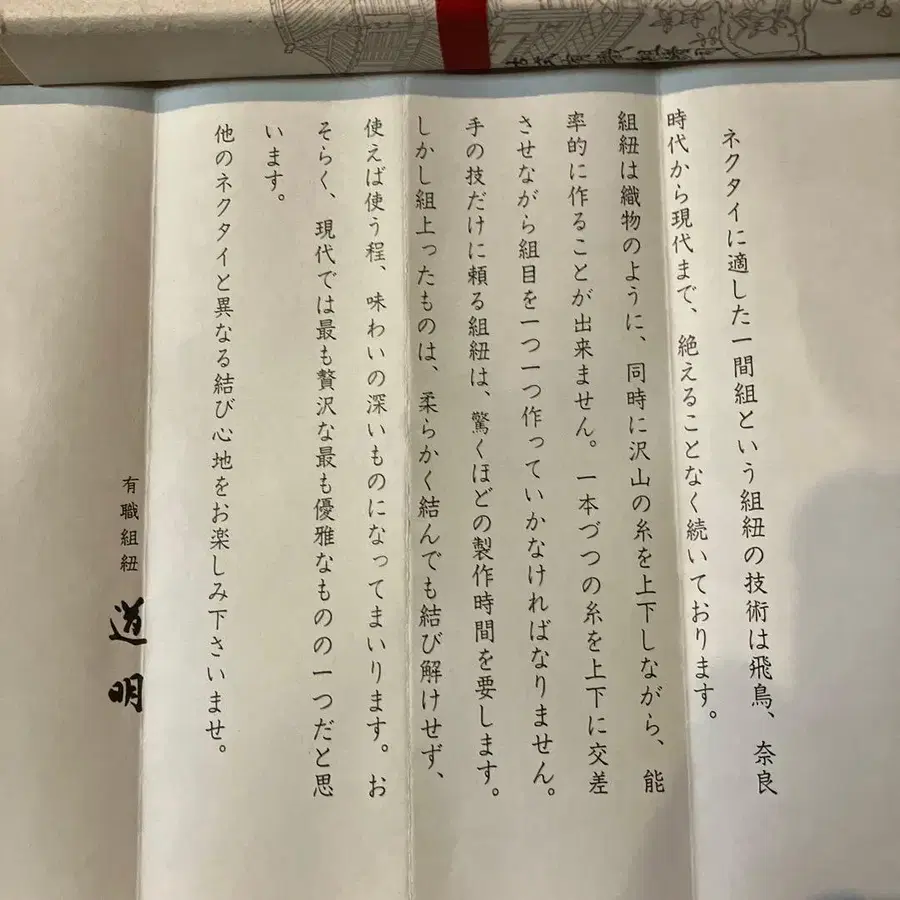 ネクタイに適した一間組という組紐の技術は飛鳥、奈良
時代から現代まで、絶えることなく続いております。
組紐は織物のように、同時に沢山の糸を上下しながら、能
率的に作ることが出来ません。一本づつの糸を上下に交差
させながら組目を一つ一つ作っていかなければなりません。
手の技だけに頼る組紐は、驚くほどの製作時間を要します。
しかし組上ったものは、柔らかく結んでも結び解けせず、
使えば使う程、味わいの深いものになってまいります。お
そらく、現代では最も贅沢な最も優雅なものの一つだと思
います。
他のネクタイと異なる結び心地をお楽しみ下さいませ。
有職組紐 道明